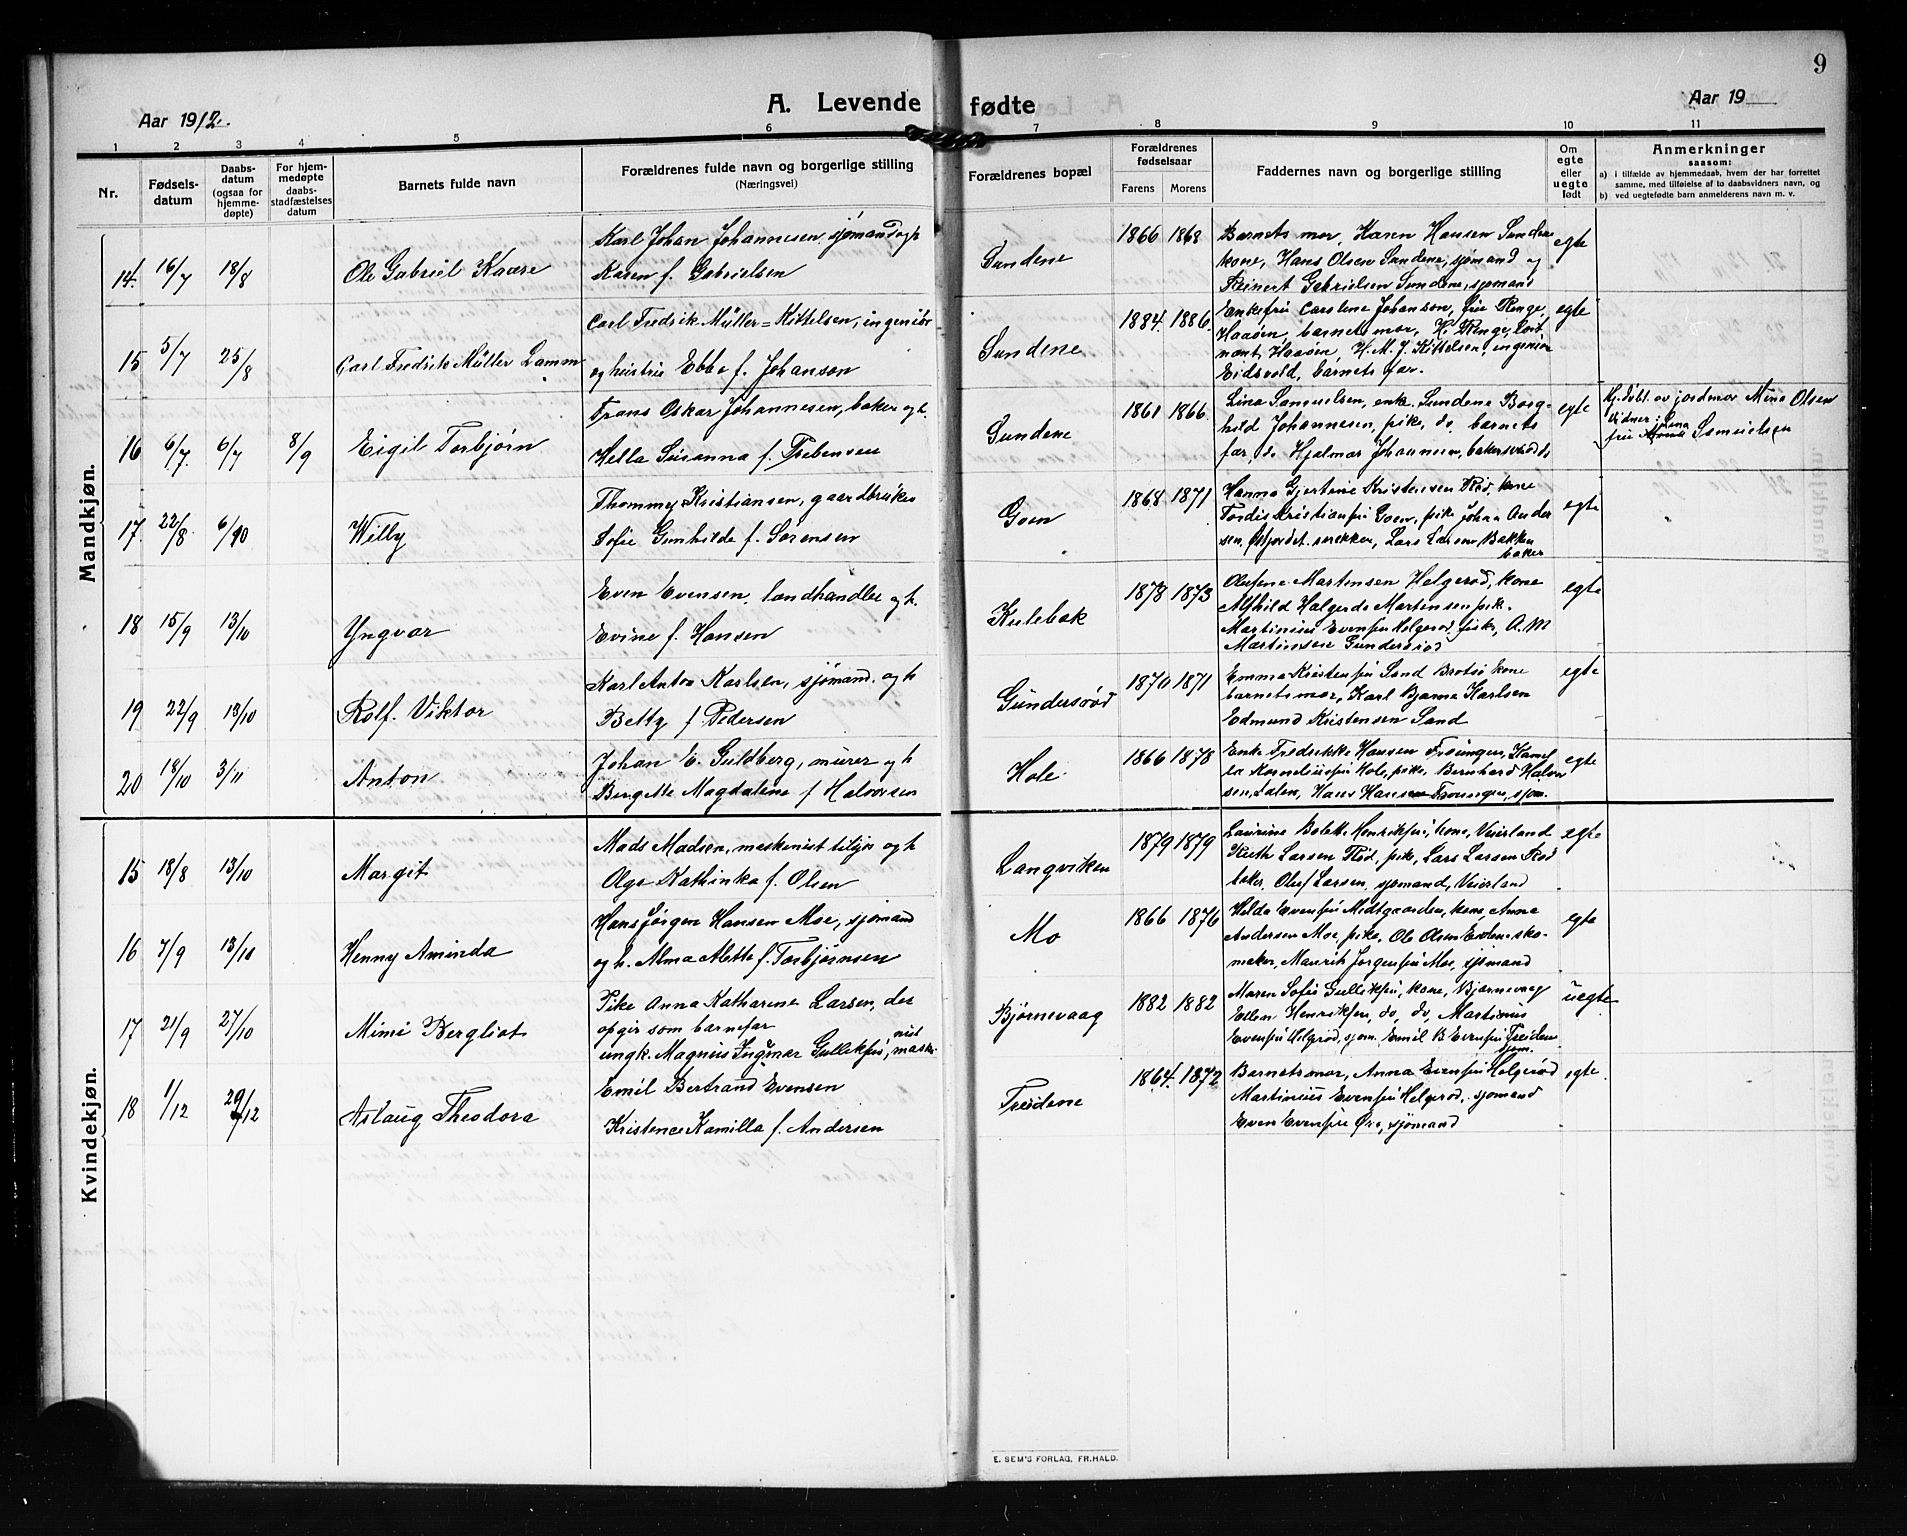 9
A. Levende fødte
Aar 1912.
Aar 19
1 2 3 4 5 6 7 8 9 10 11
Nr.
Fødsels-
datum
Daabs-
datum
(ogsaa for
hjemme-
døpte)
For hjem-
medøpte
daabs-
stadfæstelses
datum
Barnets fulde navn
Forældrenes fulde navn og borgerlige stilling
(Næringsvei)
Forældrenes bopæl
Forældrenes
fødselsaar
Farens Morens
Faddernes navn og borgerlige stilling
Om
egte
eller
uegte
født
Anmerkninger
saasom:
a) i tilfælde av hjemmedaab, hvem der har forrettet
samme, med tilføielse af to daabsvidners navn, og
b) ved uegtefødte barn anmelderens navn m. v.
Mandkjøn.
14. 16/7 18/8 Ole Gabriel Kaare
Karl Johan Johannesen, sjømand og h
Karen f. Gabrielsen
Sundene 1866 1868
Barnets mor, Karen Hansen Sundene
kone, Hans Olsen Sundene, sjømand og
Reinert Gabrielsen Sundene, sjømand
egte
15 5/7 25/8 Carl Fredrik Müller Lamm
Carl Fredrik Müller=Kittelsen, ingeniør
og hustru Ebba f. Johanson
Sundene 1884. 1886.
Enkefru Caroline Johanson, fru Ringe,
Haaøen, barnets mor, H. Ringe, Løit
nant, Haaøen, H. M. J. Kittelsen, ingeniør
Eidsvold, barnets far.
egte
16 6/7. 6/7 8/9 Eigil Torbjørn
Frans Oskar Johannesen, baker og h.
Hella Susanna f. Trebensen
Sundene 1861 1866
Lina Samuelsen, enk. Sundene Borg-
hild Johannesen, pike, do, barnets
far, do Hjalmar Johannesen, bakersvend do
egte
Hj.døbt. av jordmor Mina Olsen
Vidner: Lina
fru Samuelsen
17. 22/8 6/10 Willy
Thommy Kristiansen, gaardbruker
Sofie Gunhilde f. Sørensen
Goen 1868 1871
Hanna Gjertine Kristensen Rød, kone
Tordis Kristiansen Goen, pike Johan Ander
sen, Østjordet. snekker, Lars Larsen Bakken
baker
egte
18 15/9 13/10 Yngvar
Even Evensen, landhandler og h.
Evine f. Hansen
Kulebak 1878 1873
Olufine Martinsen Helgerød, kone
Alfhild Helgerde Martensen pik.
Martinius Evensen Helgerød, fisker, A. M
Martinsen Gundersrød
egte
19 22/9 13/10 Rolf. Viktor
Karl Anton Karlsen, sjømand. og h
Betty f Pedersen
Gundersrød 1870 1871
Emma Kristensen Sand Brotsø kone
barnets mor, Karl Bjarne Karlsen
Edmund Kristensen Sand
egte
20 18/10 3/11 Anton
Johan E. Guldberg, murer og h
Bergitte Magdalene f Halvorsen
Hole 1866 1878
Enke Fredrikke Hansen
Korneliussen Hole, pike, Bernhard Halvor
sen, Dalen, Hans Hansen
egte
Kvindekjøn.
15 18/8 13/10 Margit
Mads Madsen, maskinist tilsjøs og h
Olga Kathinka f. Olsen
Langviken 1879 1879
Laurine Bolette Henriksen, kone, Veierland
Ruth Larsen Rød, pike, Lars Larsen Rød
baker, Oluf Larsen, sjømand, Veierland
egte
16 7/9 13/10 Henny Aminda
Hans Jørgen Hansen Moe, sjømand
og h. Alma Alette f. Torbjørnsen
Mo 1866 1876
Helda Evensen Midtgaarden, kone, Anna
Andersen Moe, pike, Ole Olsen sko-
maker, Maurits Jørgensen Moe, sjømand
egte
17 21/9 27/10 Mimi Bergliot
Pike Anna Katharine Larsen, der
opgir som barnefar
ungk. Magnus Ingmar Gulliksen, maski
nist
Bjørnevaag 1882 1882
Maren Sofie Gulliksen, kone, Bjørnevaag
Ellen Henriksen, do, do, Martinius
Evensen Helgerød, sjøm. Emil B. Evensen Treidene
sjøm.
uegte
18 1/12 29/12 Aslaug Theodora
Emil Bertrand Evensen
Kristence Kamilla f. Andersen
Treidene 1864. 1872
Barnets mor, Anna Evensen Helgerød
Martinius Evensen Helgerød, sjømand
Even Evensen Øra, sjømand
egte
E. SEM'S FORLAG, FR.HALD.